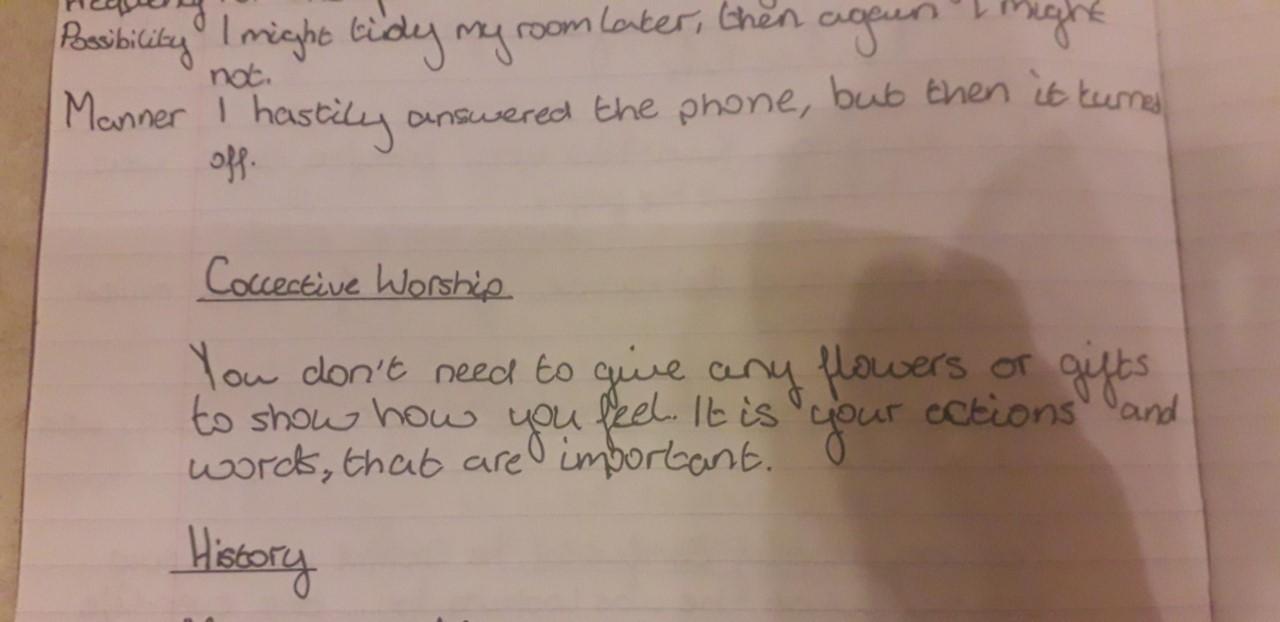 Frequency
Possibility I might tidy my room later, then again I might
not.
Manner I hastily answered the phone, but then it turned
off.
Collective Worship
You don't need to give any flowers or gifts
to show how you feel. It is your actions and
words, that are important.
History